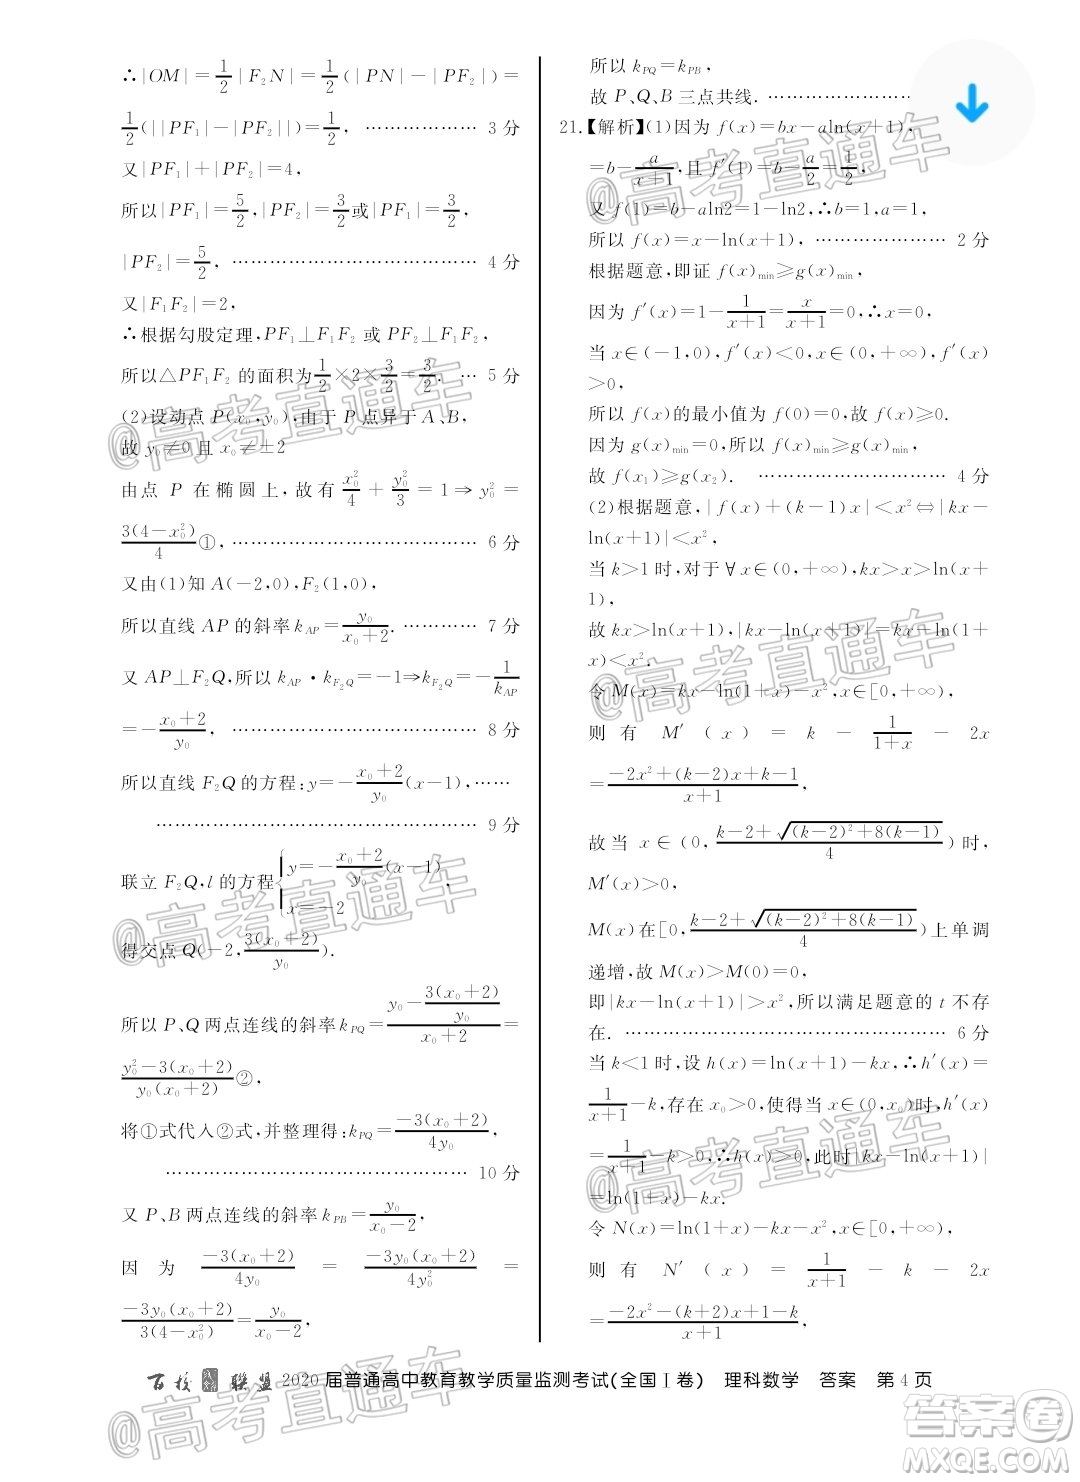 ∴|OM|=1/2|F₂N|=1/2(|PN|-|PF₂|)=
1/2(||PF₁|-|PF₂||)=1/2, ……………… 3 分
又|PF₁|+|PF₂|=4,
所以|PF₁|=5/2,|PF₂|=3/2或|PF₁|=3/2,
|PF₂|=5/2, ………………………………… 4 分
又|F₁F₂|=2,
∴根据勾股定理,PF₁⊥F₁F₂ 或 PF₂⊥F₁F₂,
所以△PF₁F₂ 的面积为1/2×2×3/2=3/2. … 5 分
(2)设动点 P(x₀,y₀),由于 P 点异于 A、B,
故 y₀≠0 且 x₀≠±2
由点 P 在椭圆上,故有 x₀²/4 + y₀²/3 = 1⇒y₀²=
3(4-x₀²)/4①, ………………………………… 6 分
又由(1)知 A(-2,0),F₂(1,0),
所以直线 AP 的斜率 k_AP=y₀/(x₀+2). ………… 7 分
又 AP⊥F₂Q,所以 k_AP·k_F₂Q=-1⇒k_F₂Q=-1/k_AP
=-(x₀+2)/y₀, ………………………………… 8 分
所以直线 F₂Q 的方程:y=-(x₀+2)/y₀(x-1),……
…………………………………………… 9 分
联立 F₂Q,l 的方程{y=-(x₀+2)/y₀(x-1), x=-2,
得交点 Q(-2,3(x₀+2)/y₀).
所以 P、Q 两点连线的斜率 k_PQ=(y₀-3(x₀+2)/y₀)/(x₀+2)=
(y₀²-3(x₀+2))/(y₀(x₀+2))②,
将①式代入②式,并整理得:k_PQ=-3(x₀+2)/4y₀,
………………………………………… 10 分
又 P、B 两点连线的斜率 k_PB=y₀/(x₀-2),
因为 -3(x₀+2)/4y₀ = -3y₀(x₀+2)/4y₀² =
-3y₀(x₀+2)/3(4-x₀²)=y₀/(x₀-2),
所以 k_PQ=k_PB,
故 P、Q、B 三点共线. ……………………
21.【解析】(1)因为 f(x)=bx-aln(x+1),
=b-a/(x+1),且 f′(1)=b-a/2=1/2,
又 f(1)=b-aln2=1-ln2,∴b=1,a=1,
所以 f(x)=x-ln(x+1), ………………… 2 分
根据题意,即证 f(x)min≥g(x)min,
因为 f′(x)=1-1/(x+1)=x/(x+1)=0,∴x=0,
当 x∈(-1,0),f′(x)<0,x∈(0,+∞),f′(x)
>0,
所以 f(x)的最小值为 f(0)=0,故 f(x)≥0.
因为 g(x)min=0,所以 f(x)min≥g(x)min,
故 f(x₁)≥g(x₂). ………………………… 4 分
(2)根据题意,|f(x)+(k-1)x|<x²⇔|kx-
ln(x+1)|<x²,
当 k>1 时,对于∀x∈(0,+∞),kx>x>ln(x+
1),
故 kx>ln(x+1),|kx-ln(x+1)|=kx-ln(1+
x)<x².
令 M(x)=kx-ln(1+x)-x²,x∈[0,+∞),
则有 M′(x) = k - 1/(1+x) - 2x
=(-2x²+(k-2)x+k-1)/(x+1),
故当 x∈(0,(k-2+√((k-2)²+8(k-1)))/4)时,
M′(x)>0,
M(x)在[0,(k-2+√((k-2)²+8(k-1)))/4)上单调
递增,故 M(x)>M(0)=0,
即|kx-ln(x+1)|>x²,所以满足题意的 t 不存
在. …………………………………………… 6 分
当 k<1 时,设 h(x)=ln(x+1)-kx,∴h′(x)=
1/(x+1)-k,存在 x₀>0,使得当 x∈(0,x₀)时,h′(x)
=1/(x+1)-k>0,∴h(x)>0,此时|kx-ln(x+1)|
=ln(1+x)-kx.
令 N(x)=ln(x+1)-kx-x²,x∈[0,+∞),
则有 N′(x) = 1/(x+1) - k - 2x
=(-2x²-(k+2)x+1-k)/(x+1),
百校联盟 2020 届普通高中教育教学质量监测考试(全国Ⅰ卷) 理科数学 答案 第 4 页
@高考直通车
@高考直通车
@高考直通车
@高考直通车
@高考直通车
@高考直通车
@高考直通车
@高考直通车
答案卷
MXQE.COM